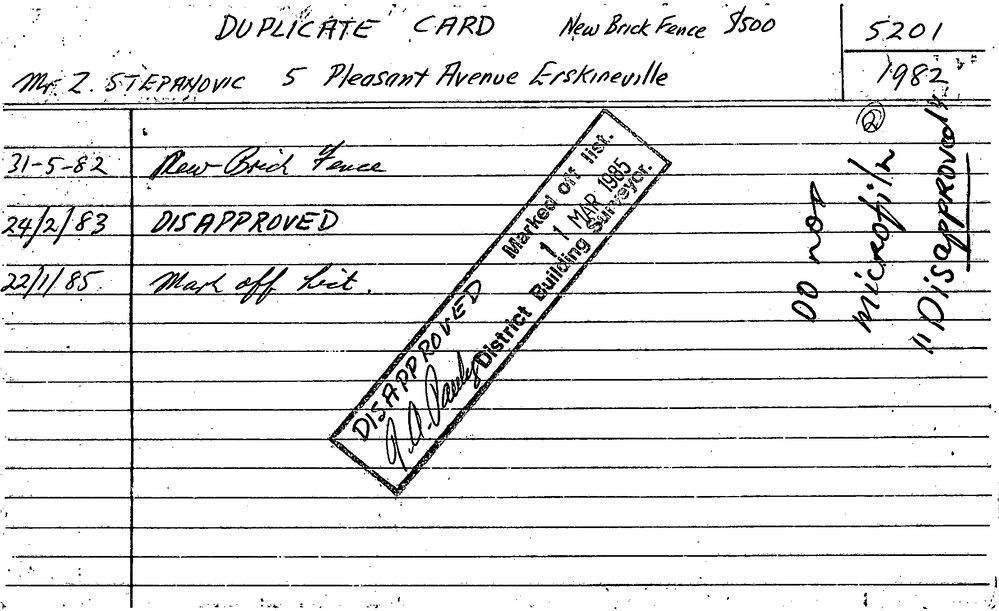 DUPLICATE CARD New Brick Fence $500
5201
1982
Mr Z. STEPANOVIC 5 Pleasant Avenue Erskineville
31-5-82 New Brick Fence
24/2/83 DISAPPROVED
22/1/85. Mark off list.
Marked off list.
11 MAR 1985
District Building Surveyor.
DISAPPROVED
2
DO NOT
microfilm
"Disapproved"